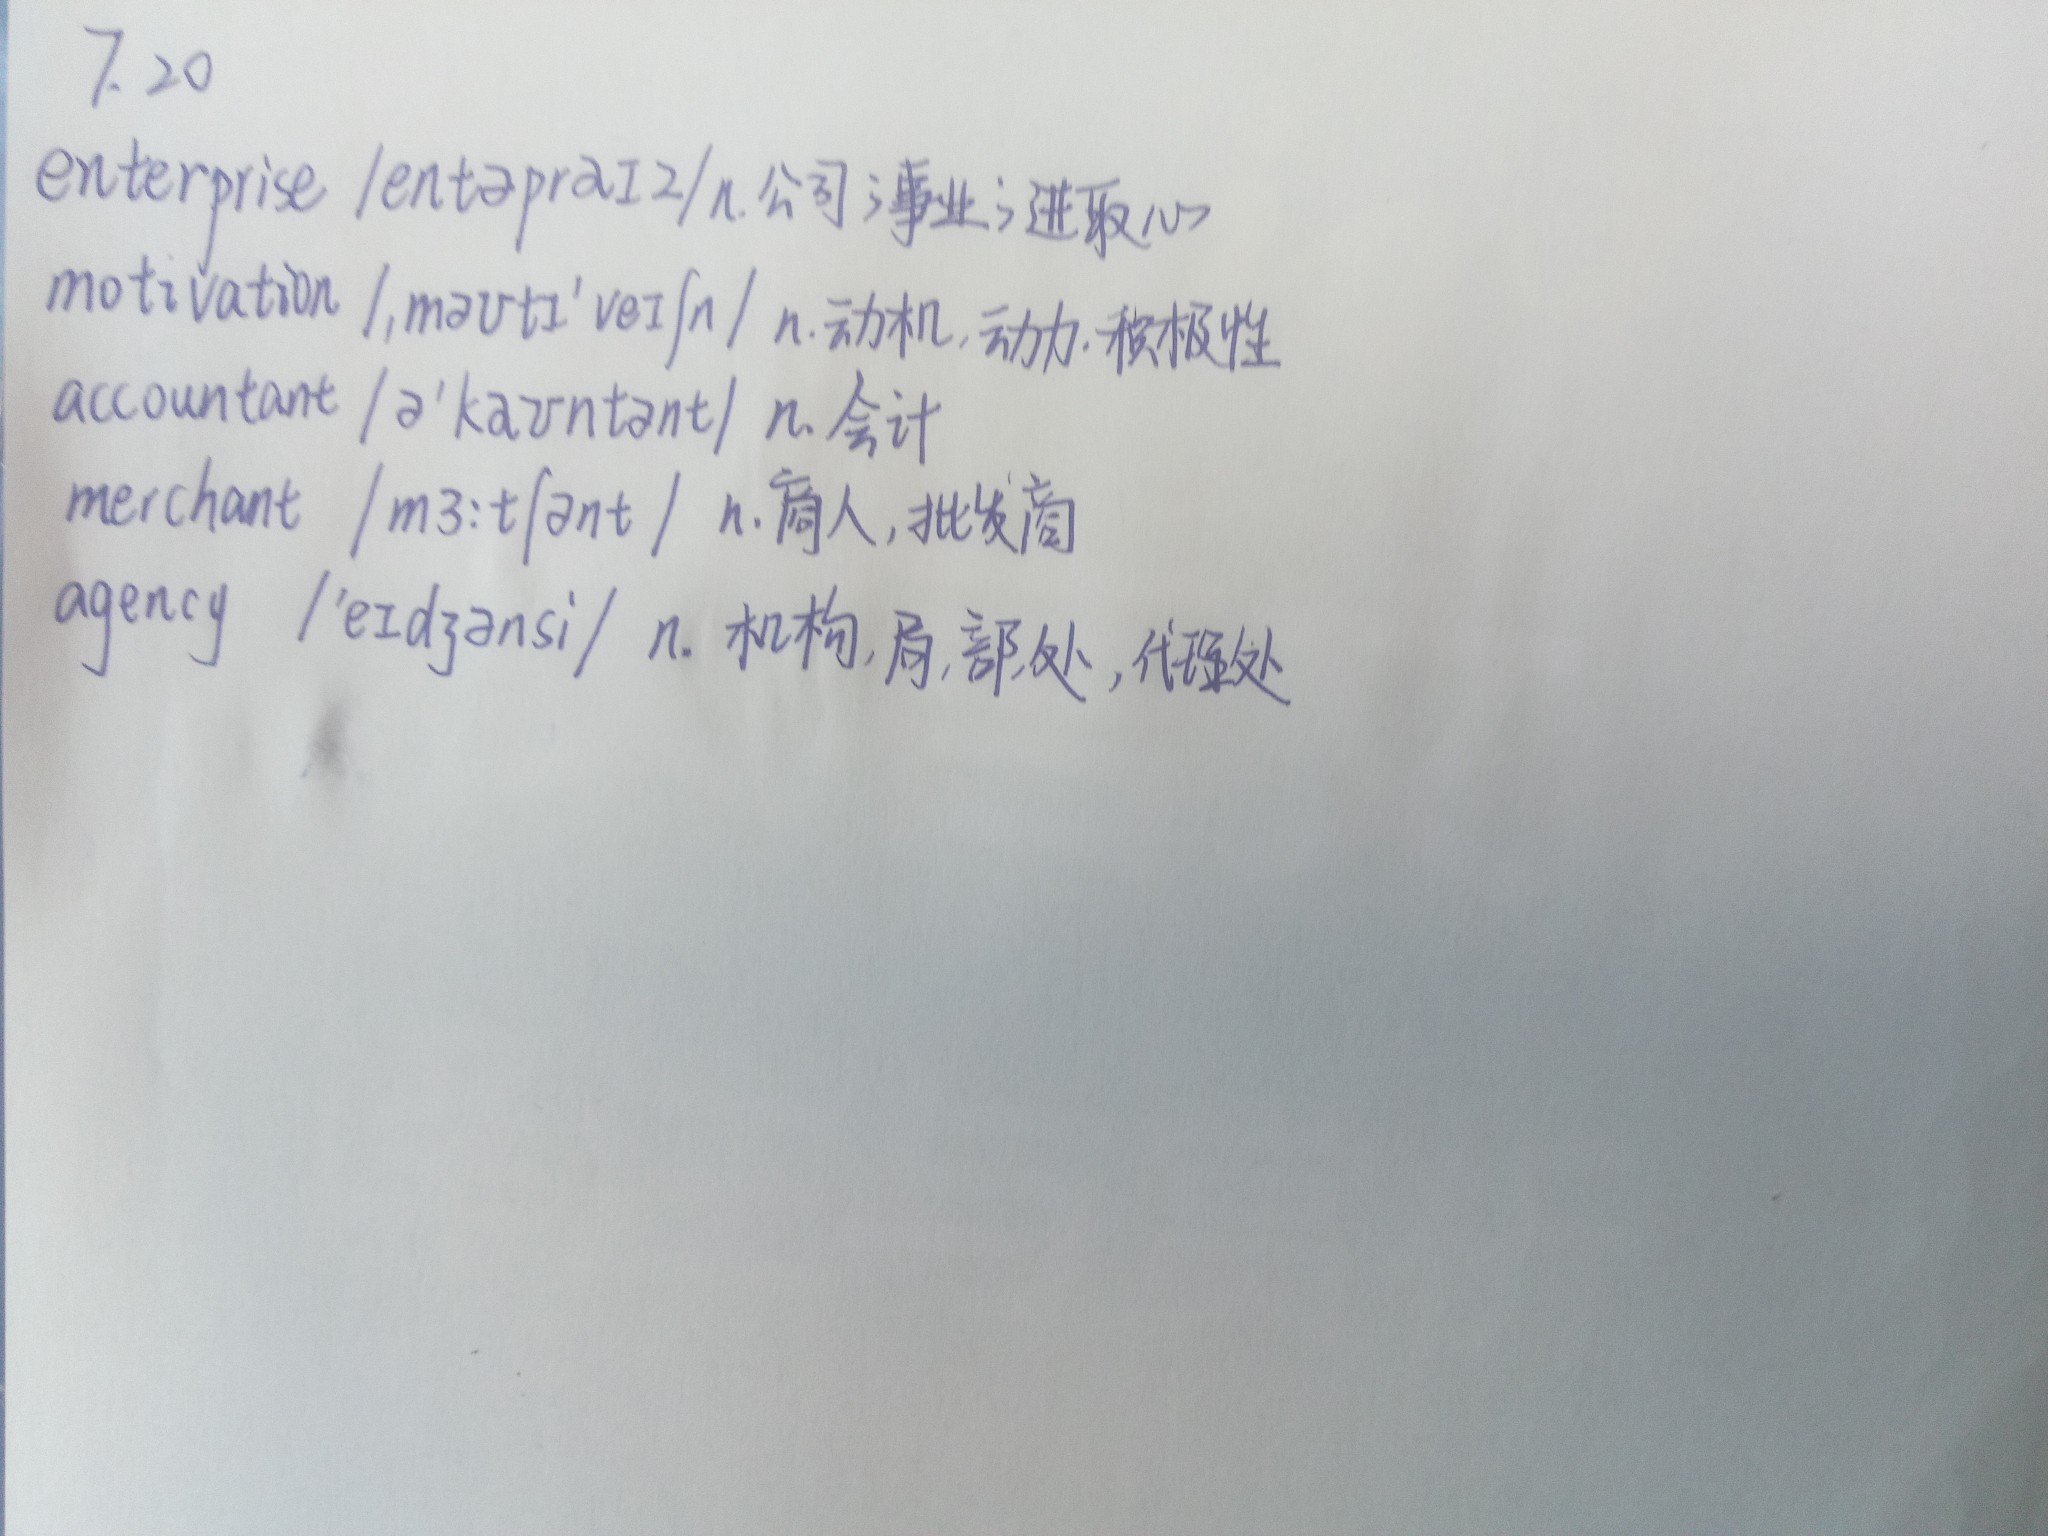 7.20
enterprise /entəpraɪz/ n. 公司;事业;进取心
motivation /ˌməʊtɪ'veɪʃn/ n. 动机,动力.积极性
accountant /ə'kaʊntənt/ n. 会计
merchant /mɜ:tʃənt/ n. 商人,批发商
agency /'eɪdʒənsi/ n. 机构,局,部,处,代理处